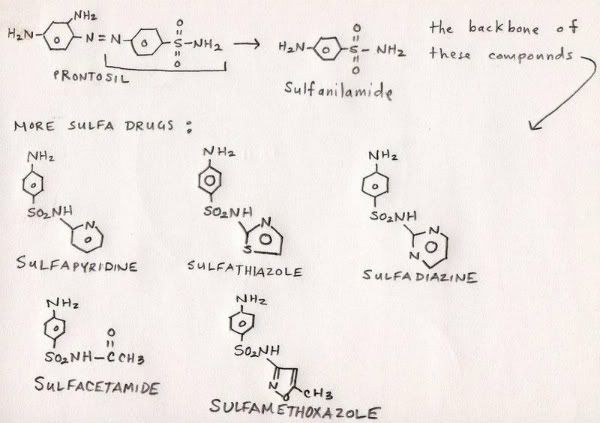 NH2
H2N
N = N
O
S-NH2
O
PRONTOSIL
H2N
O
S- NH2
O
Sulfanilamide
the backbone of
these compounds
MORE SULFA DRUGS :
NH2
SO2NH
N
SULFAPYRIDINE
NH2
SO2NH
N
S
SULFATHIAZOLE
NH2
SO2NH
N
N
SULFADIAZINE
NH2
O
SO2NH-CCH3
SULFACETAMIDE
NH2
SO2NH
N
O
CH3
SULFAMETHOXAZOLE